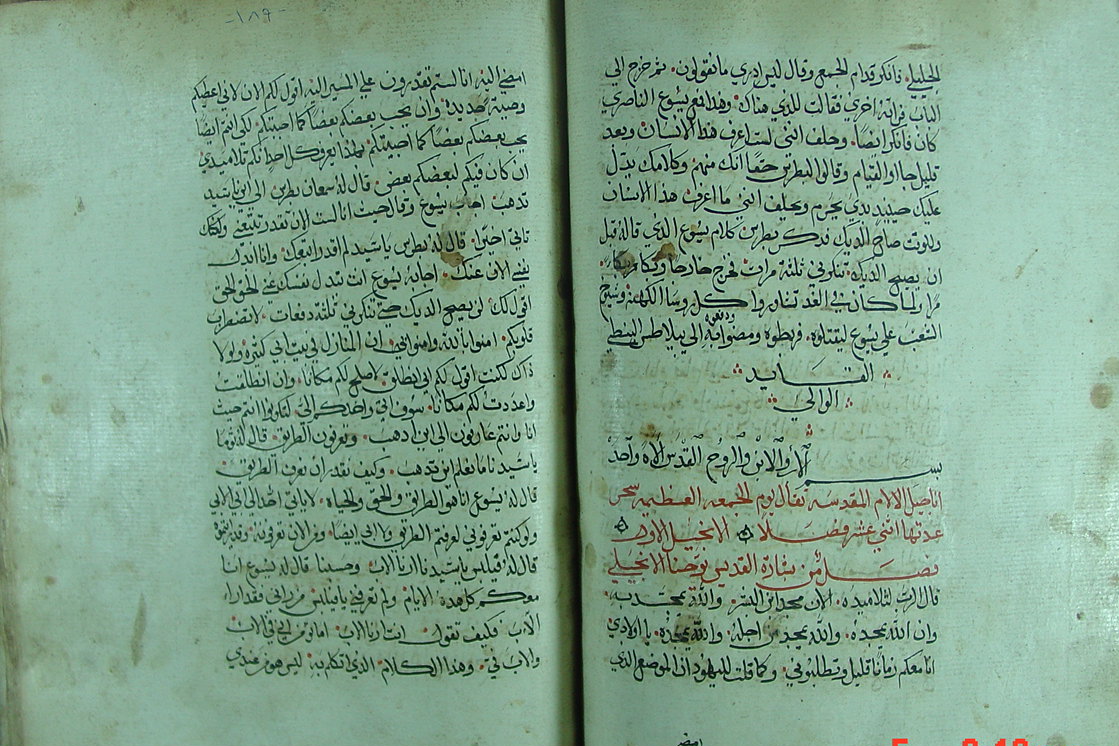 الجليلي. فانكر قدام الجمع وقال ليس ادري ما تقولين. ثم خرج الى
الباب فراته اخري فقالت للذي هناك. وهذا مع يسوع الناصري
كان فانكر ايضا. وحلف انني لست اعرف هذا الانسان وبعد
قليل جاا والقيام وقالوا لبطرس حقا انك منهم وكلامك يدل
عليك حينيذ بدي يحرم ويحلف انني ما اعرف هذا الانسان
وللوقت صاح الديك فذكر بطرس كلام يسوع الذي قاله قبل
ان يصيح الديك. تنكرني ثلثة مرات فخرج خارجا وبكا بكاا
مرا ولما كان في الغد تشاوروا كل روسا الكهنة وشيوخ
الشعب علي يسوع ليقتلوه. فربطوه ومضوا به ودفعوه الى بيلاطس البنطي
القايد
الوالي
بسم الاب والابن والروح القدس الاه واحد
اناجيل الالام المقدسه تقال يوم الجمعه العظيمه سحر
عدتها اثني عشر فصلا الانجيل الاول
فصل من بشارة القديس يوحنا الانجيلي
قال الرب لتلاميذه. الان مجد ابن البشر. والله تمجد به.
وان الله تمجد به. والله يمجده من اجله. والله يمجده. يا اولادي
انا معكم زمانا قليل وتطلبوني. وكما قلت لليهود ان الموضع الذي
امضي
-١٨٩-
امضي اليه انا لستم تقدرون علي المسير اليه اقول لكم الان لاني اعطيكم
وصية جديدة. وان يحب بعضكم بعضا كما احببتكم. لكي انتم ايضا
يحب بعضكم بعضا كما احببتكم. بهذا يعرف كل احد انكم تلاميذي
ان كان فيكم لبعضكم بعض. قال له سمعان بطرس الى اين يا سيد
تذهب اجاب يسوع وقال حيث انا لست الان تقدر تتبعني ولكنك
تاتي اخيرا. قال له بطرس يا سيد لم اقدر اتبعك. وانا ابذل
نفسي الان عنك. اجابه يسوع انت تبذل نفسك عني الحق الحق
اقول لك لن يصيح الديك حتي تنكرني ثلثة دفعات. لا تضطرب
قلوبكم. امنوا بالله وامنوا بي. ان المنازل في بيت ابي كثيرة ولولا
ذاك لكنت اقول لكم اني انطلق لاصلح لكم مكانا. وان انطلقت
واعددت لكم مكانا. سوف اتي واخدكم الى. لتكونوا انتم حيث
انا وانتم عارفون الى اين اذهب. وتعرفون الطريق. قال له توما
يا سيد ما نعلم اين تذهب. وكيف نقدر ان نعرف الطريق
قال له يسوع انا هو الطريق والحق والحياه. لا ياتي احد الى ابي الا بي
ولو كنتم تعرفوني لعرفتم الطريق وابي ايضا. ومن الان تعرفونه وقد رايتموه
قال له فيلبس يا سيد ارنا الاب. وحسبنا قال له يسوع انا
معكم كل هذه الايام ولم تعرفني يا فيلبس من راني فقد راا
الاب. فكيف تقول انت ارنا الاب. اما تومن اني في الاب
والاب في. وهذا الكلام الذي اتكلم به. ليس هو من عندي